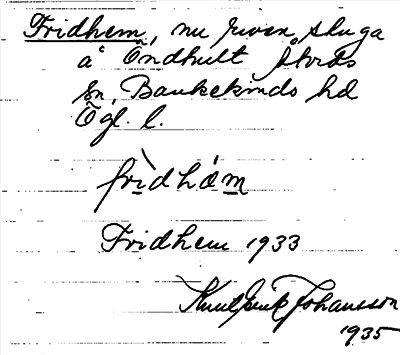 Fridhem, nu riven stuga
å Öndhult Åtvids
sn, Bankekinds hd
Ögl. l.
frìdhǽm
Fridhem 1933
Knut Erik Johansson
1935